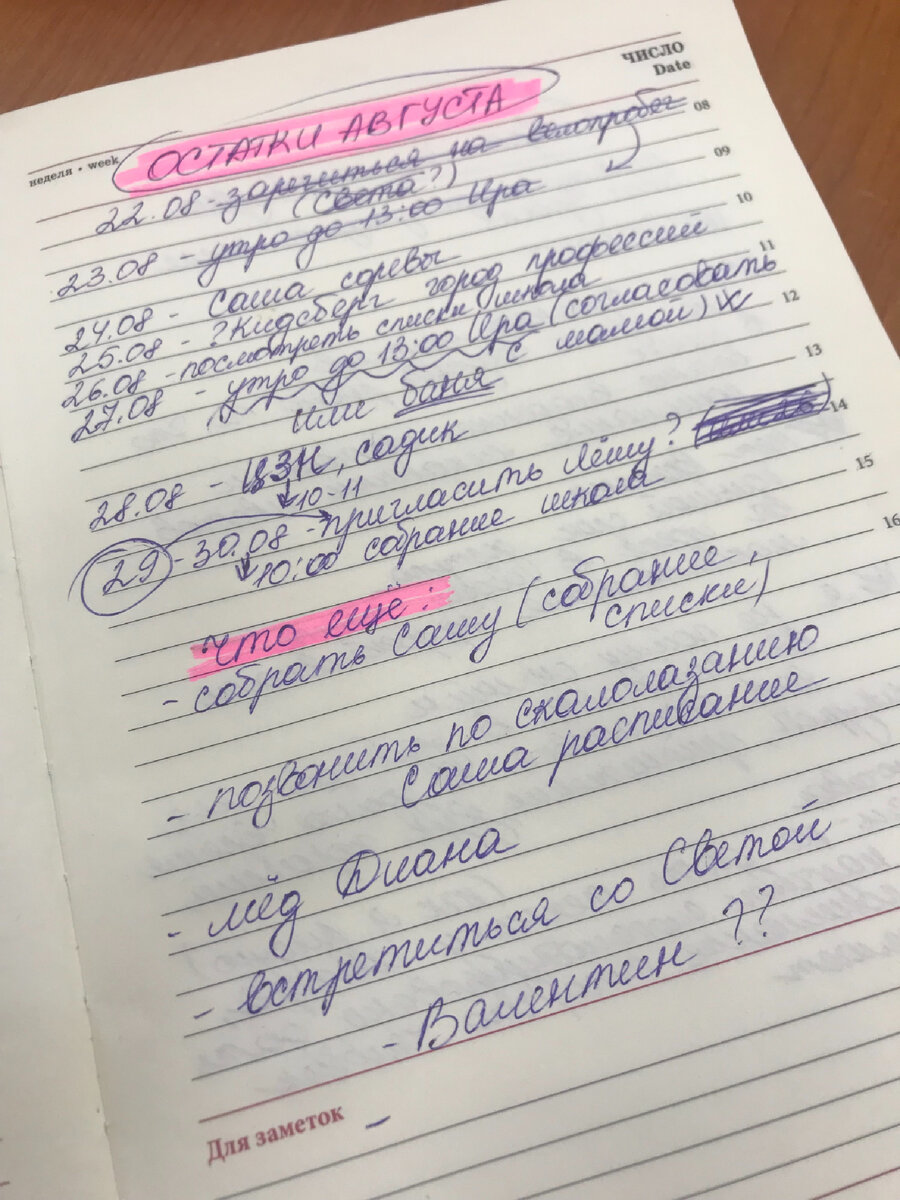 ЧИСЛО
Date
неделя • week
ОСТАТКИ АВГУСТА
08
22.08 - зарегиться на велопробег
(Света?)
09
23.08 - утро до 13:00 Ира
10
24.08 - Саша соревы
11
25.08 - ?Кидсберг город профессий
26.08 - посмотреть списки школа
12
27.08 - утро до 13:00 Ира (согласовать
с мамой)
или баня
13
28.08 - ЦЗН, садик
14
10-11
29 - 30.08 - пригласить Лёшу?
15
10:00 собрание школа
16
Что ещё:
- собрать Сашу (собрание,
списки)
- позвонить по скалолазанию
Саша расписание
- мёд Диана
- встретиться со Светой
- Валентин ??
Для заметок